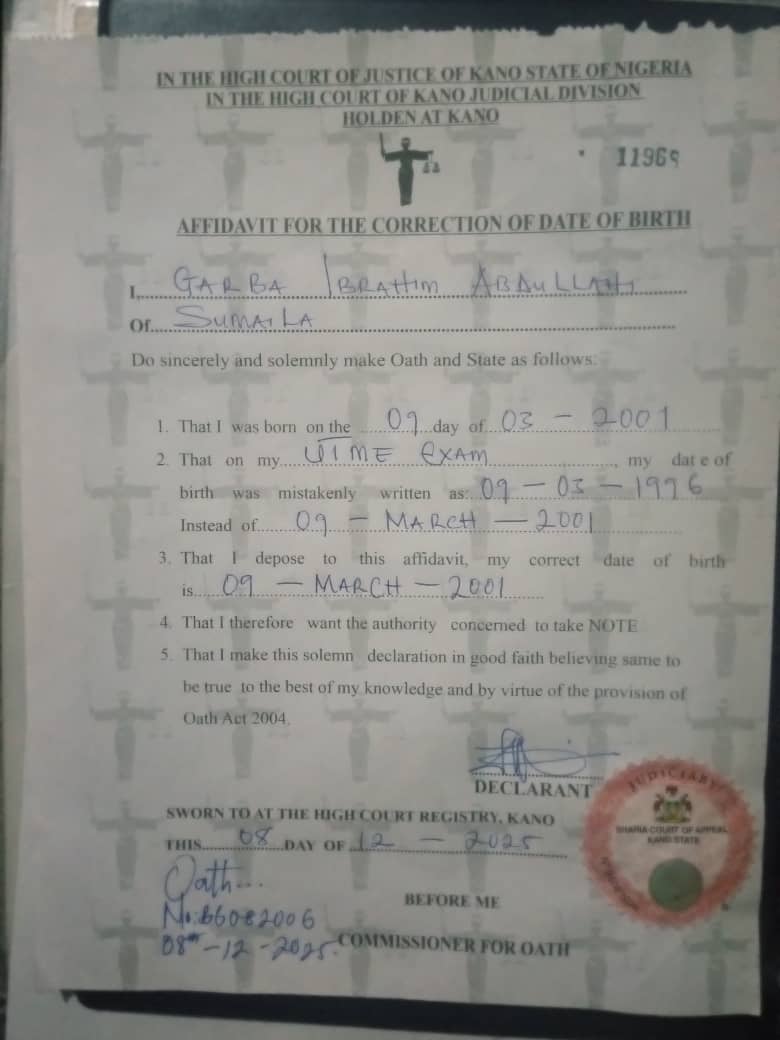 IN THE HIGH COURT OF JUSTICE OF KANO STATE OF NIGERIA
IN THE HIGH COURT OF KANO JUDICIAL DIVISION
HOLDEN AT KANO
11969
AFFIDAVIT FOR THE CORRECTION OF DATE OF BIRTH
I, GARBA IBRAHIM ABDULLAHI
Of SUMAILA
Do sincerely and solemnly make Oath and State as follows:
1. That I was born on the 09 day of 03 - 2001
2. That on my UTME EXAM, my date of
birth was mistakenly written as: 09 - 03 - 1996
Instead of 09 - MARCH - 2001
3. That I depose to this affidavit, my correct date of birth
is 09 - MARCH - 2001
4. That I therefore want the authority concerned to take NOTE
5. That I make this solemn declaration in good faith believing same to
be true to the best of my knowledge and by virtue of the provision of
Oath Act 2004.
DECLARANT
SWORN TO AT THE HIGH COURT REGISTRY, KANO
THIS 08 DAY OF 12 - 2025
Oath...
No: 66082006
08th-12-2025.
BEFORE ME
COMMISSIONER FOR OATH
JUDICIARY
SHARIA COURT OF APPEAL
KANO STATE